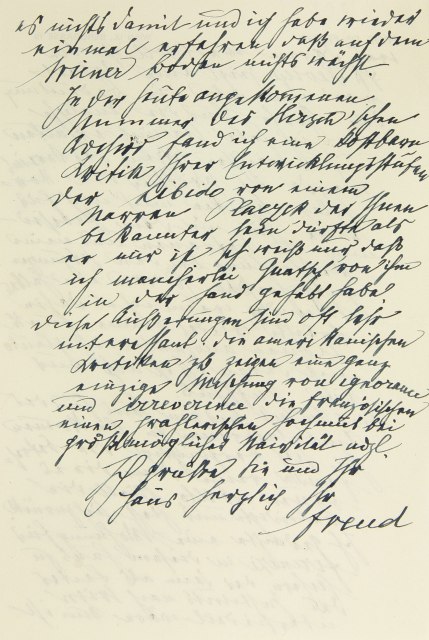 es nichts damit und ich habe wieder
einmal erfahren daß auf dem
Wiener Boden nichts wächst.
In der heute angekommenen
Nummer des Hirsch'schen
Archivs fand ich eine kostbare
Kritik Ihrer Entwicklungsstufen
der Libido von einem
Narren Placzek der Ihnen
bekannter sein dürfte als
er mir ist. Ich weiß nur daß
ich mancherlei Quatsch von ihm
in der Hand gehabt habe
diese Äußerungen sind oft sehr
interessant die amerikanischen
Kritiken zb zeigen eine ganz
einzige Mischung von ignorance
und irreverence die französischen
einen prahlerischen Hochmut bei
größtmöglicher Naivität udgl
Ich grüße Sie und Ihr
Haus herzlich Ihr
Freud